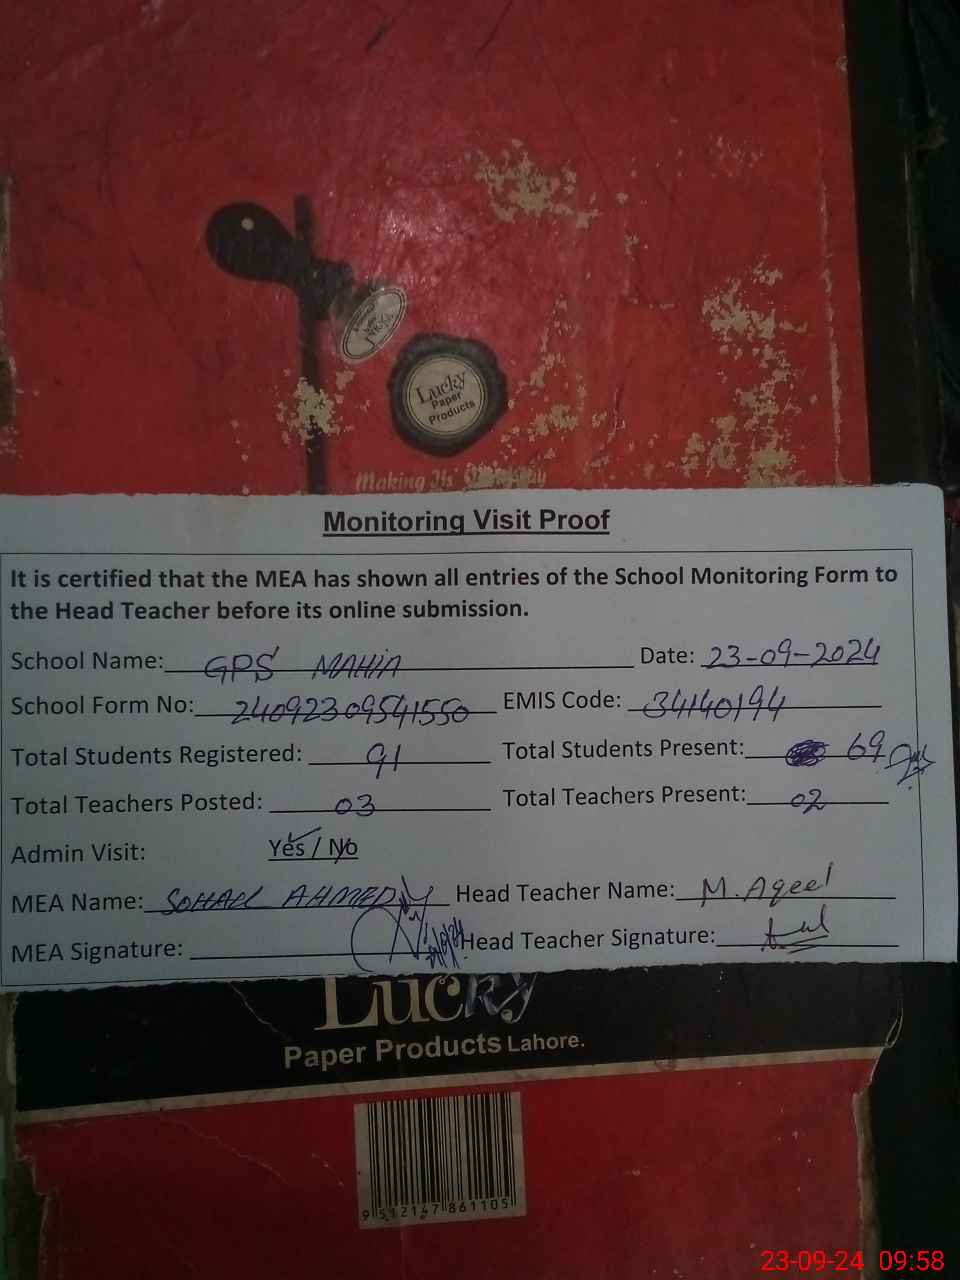 Lucky
Paper
Products
Making Its
Monitoring Visit Proof
It is certified that the MEA has shown all entries of the School Monitoring Form to
the Head Teacher before its online submission.
School Name: GPS MAHIA Date: 23-09-2024
School Form No: 24092309541550 EMIS Code: 34140194
Total Students Registered: 91 Total Students Present: 69
Total Teachers Posted: 03 Total Teachers Present: 02
Admin Visit: Yes / No
MEA Name: SOHAIL AHMED Head Teacher Name: M. Aqeel
MEA Signature: Head Teacher Signature:
Lucky
Paper Products Lahore.
9 512147 861105
23-09-24 09:58